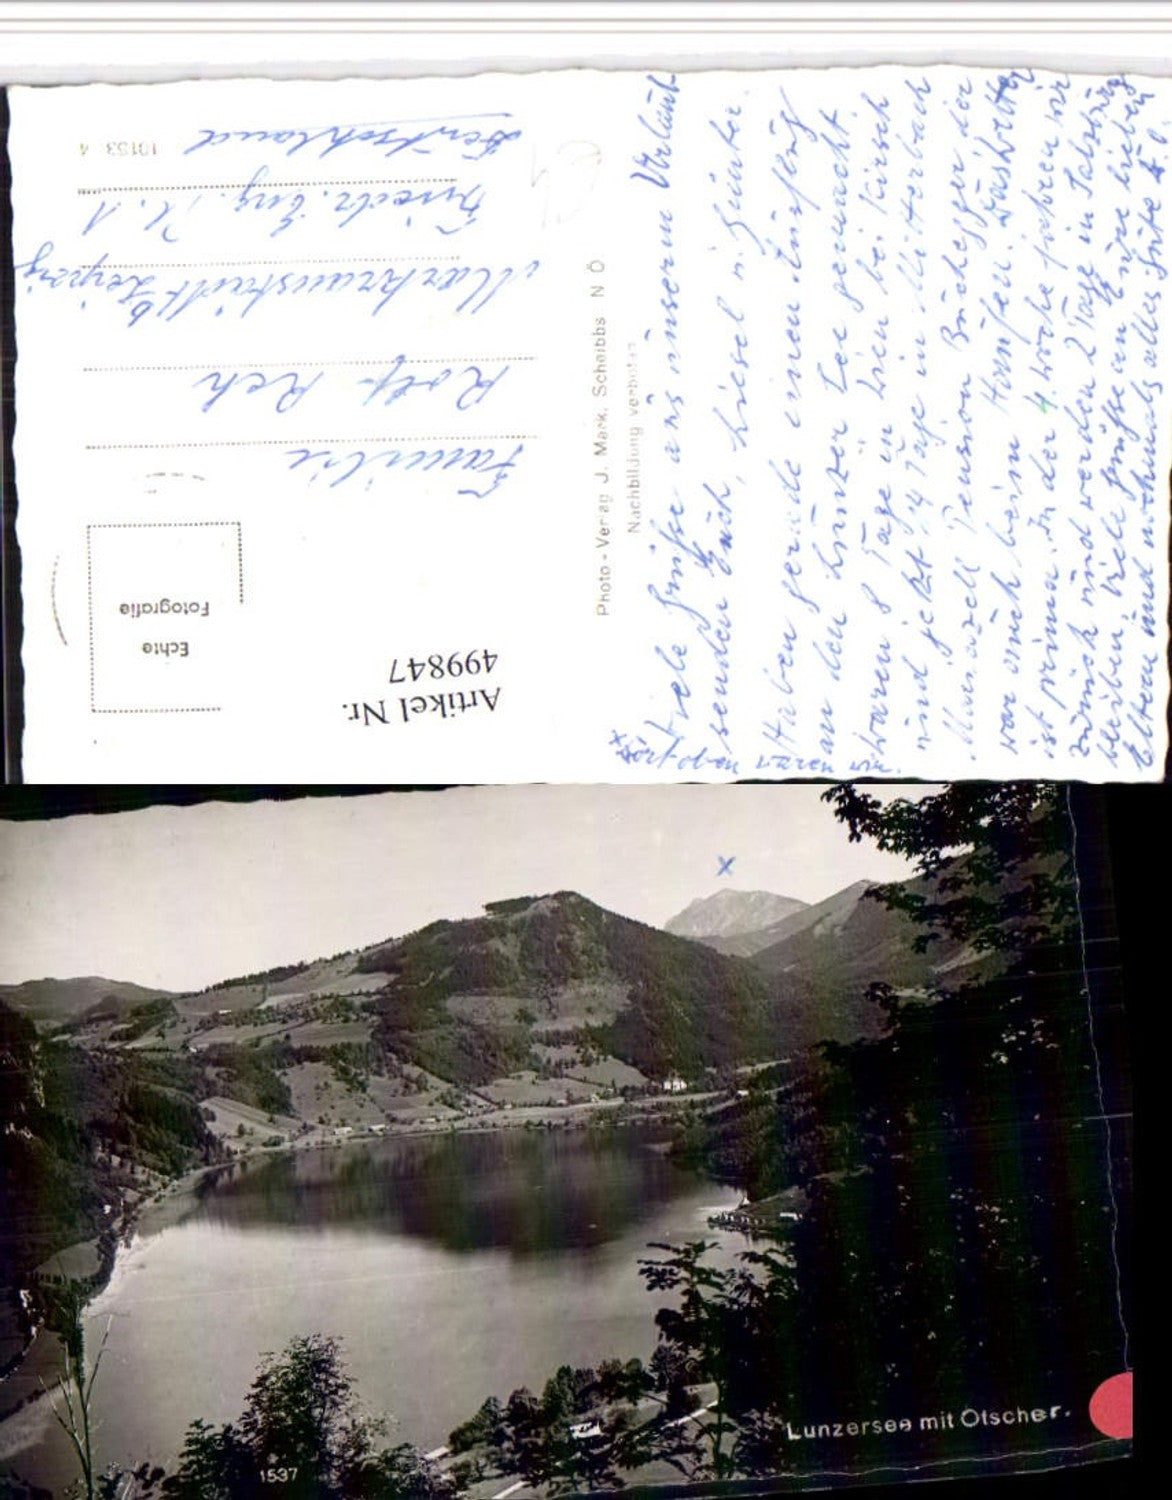 Viele Grüße aus unserm Urlaub
senden Euch, Liesel u. Günter.
Haben gerade einen Ausflug
an den Lunzer See gemacht.
waren 8 Tage in Wien bei Kirsch
und jetzt 14 Tage in Mitterbach
Mariazell Pension Buchegger die
war auch beim
ist prima. In der 4. Woche fahren wir
zurück und werden 2 Tage in Salzburg
bleiben. Viele Grüße an Eure lieben
Eltern und nochmals alles Gute
Photo - Verlag J. Mark, Scheibbs N Ö.
Nachbildung verboten
Artikel Nr.
499847
Echte
Fotografie
Familie
Rolf
Markranstädt b. Leipzig
Friedr. Eng. Pl. 1
Deutschland
10153 4
X
Lunzersee mit Ötscher.
1537